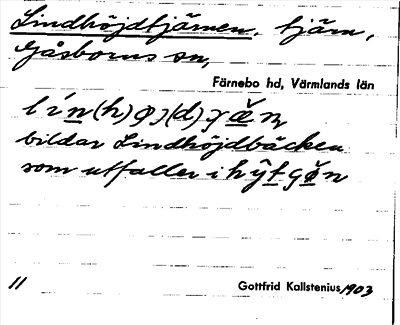 Lindhöjdtjärnen, tjärn,
Gåsborns sn,
Färnebo hd, Värmlands län
bildar Lindhöjdbäcken
som utfaller i
11 Gottfrid Kallstenius 1903